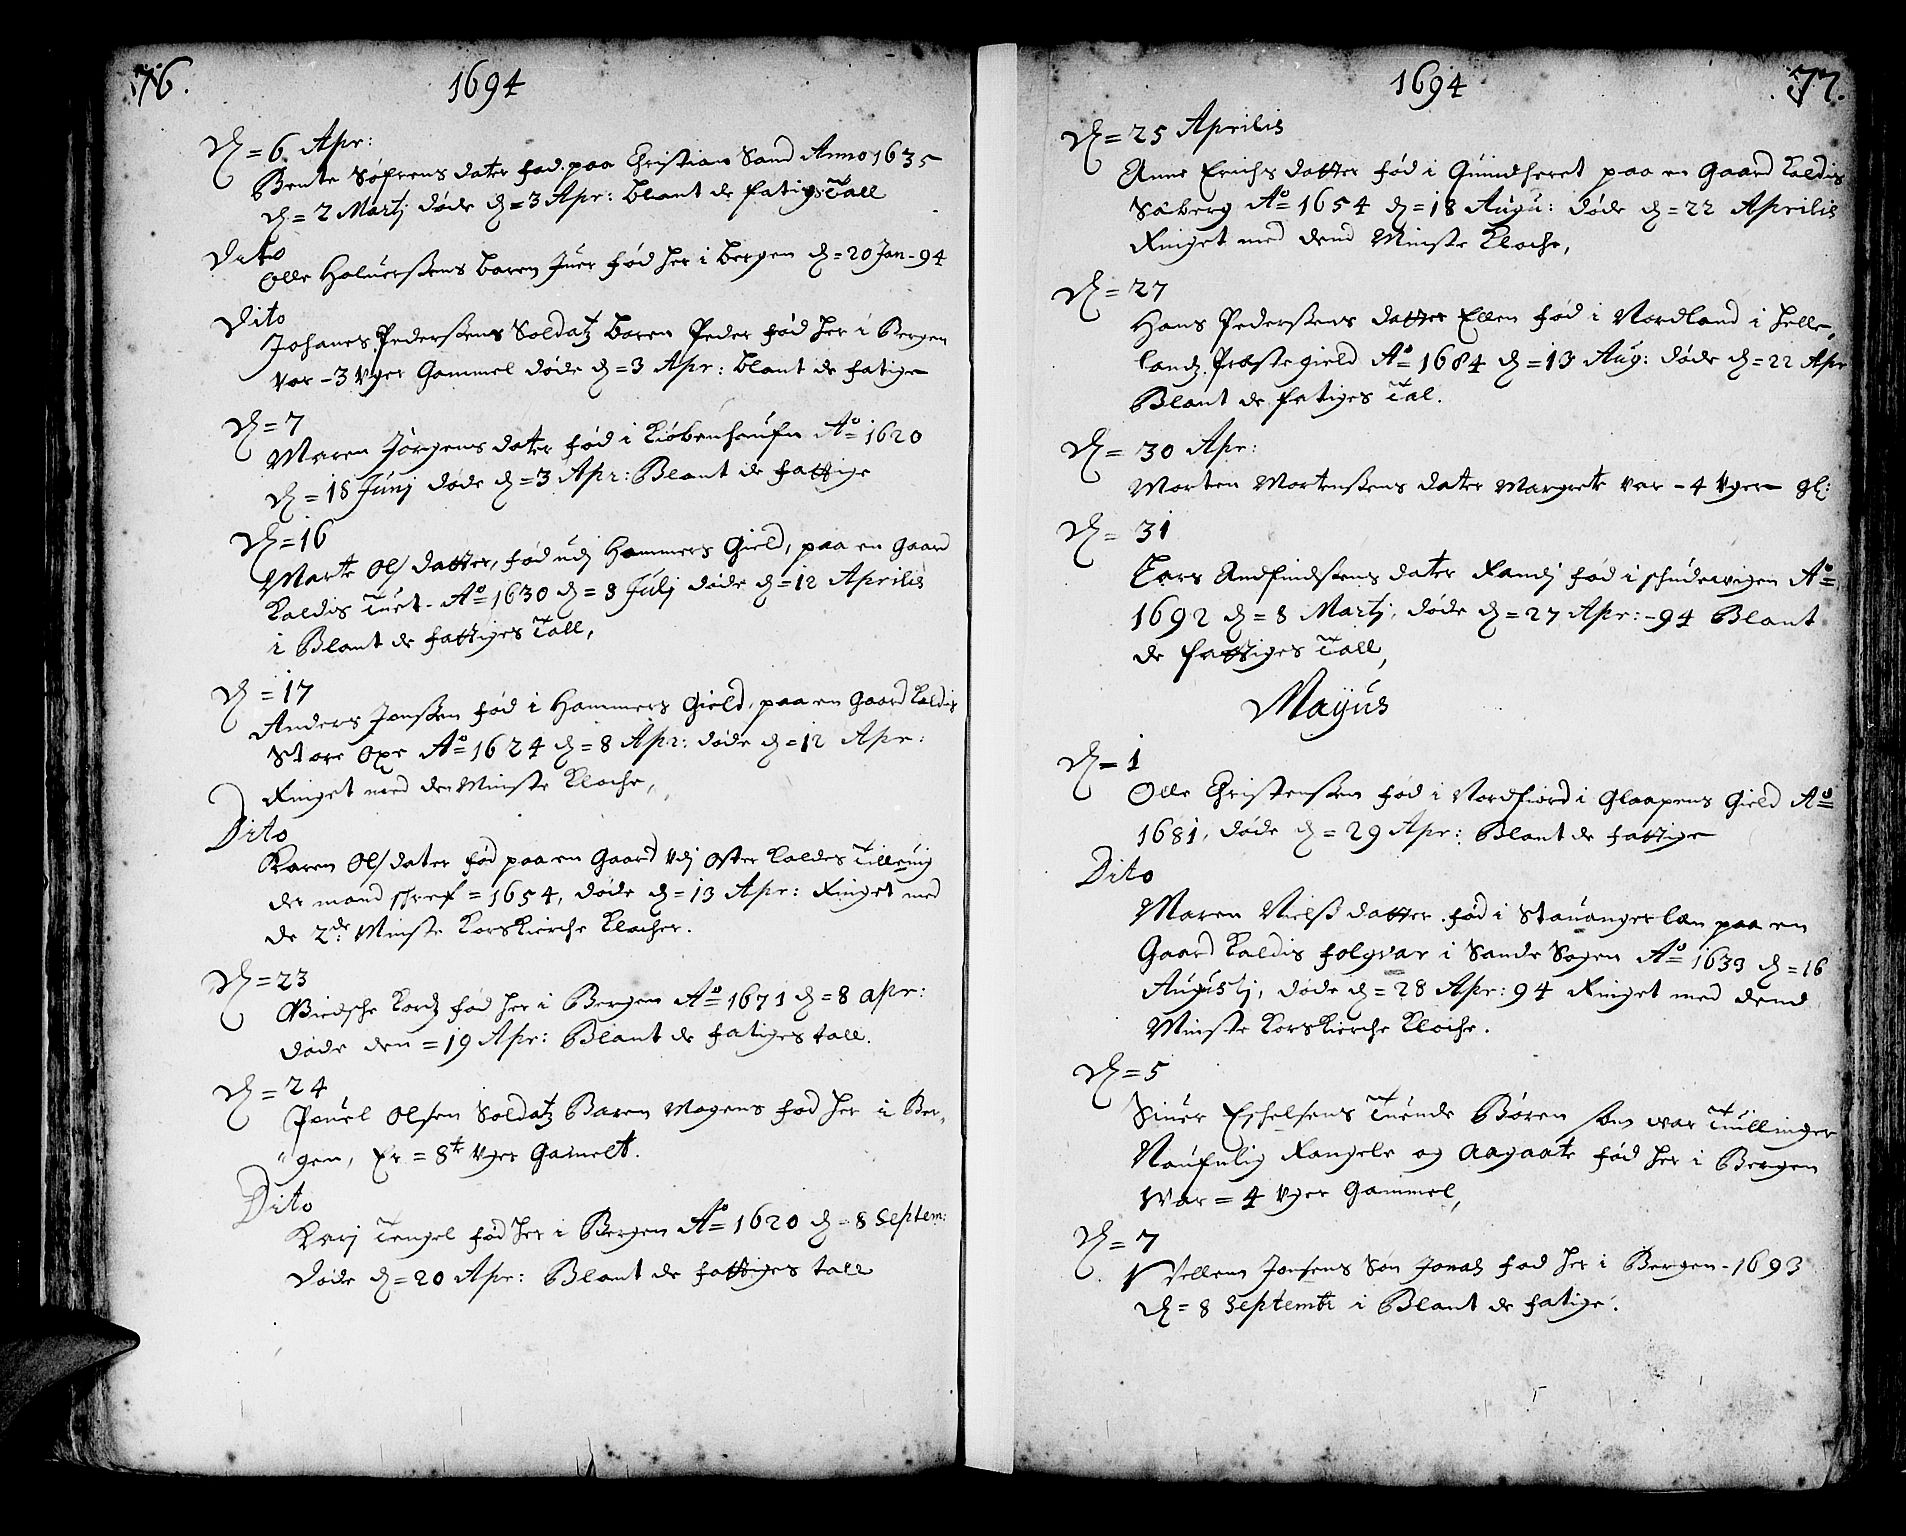 76.
1694
D = 6. Apr:
Bente Søfrens dater fød paa Christian Sand Anno 1635
D = 2 Martj døde D = 3 Apr: blant de fatigs Tall
Dito
Olle Haluerßens baren Juer fød her i bergen D = 20 Jan - 94
Dito
Johanes Pederßens Soldatz baren Peder fød her i Bergen
var - 3 Vger Gammel døde D = 3 Apr: blant de fatige
D = 7
Maren Jørgens dater fød i Kiøbenhaufn Ao 1620
D = 18 Junj døde D = 3 Apr: Blant de fattige
D = 16
Marte Ols datter, fød udj Hammers Gield, paa en gaard
Kaldis Tuet - Ao 1630 D = 8 Julj døde D = 12 Aprilis
i Blant de fattiges Tall,
D = 17
Anders Jonßen fød i Hammers Gield, paa en Gaard Kaldis
Store Oxe Ao 1624 D = 8 Apr: døde D = 12 Apr:
Ringet med den Minste Kloche,
Dito
Karen Ols dater fød paa en Gaard Vdj Oster Kaldes
der mand schref = 1654, døde D = 13 Apr: Ringet med
de 2de Minste Korskierche Klocher.
D = 23
fød her i Bergen Ao 1671 D = 8 apr:
døde den = 19 Apr: Blant de fatiges tall.
D = 24
Pouel Olsen Soldatz Baren Mogens fød her i Ber,
gen, Er = 8te Vger Gamelt.
Dito
Karj Tengel fød her i Bergen Ao 1620 D = 8 Septem:
Døde D = 20 Apr: Blant de fattiges tall
1694
77.
D = 25 Aprilis
Anne Erichs datter fød i Quindheret paa en Gaard Kaldis
Sæberg Ao 1654 D = 18 Augu: døde D = 22 Aprilis
Ringet med dend Minste Kloche,
D = 27
Hans Pederßens datter Ellen fød i Nordland i Helle,
landz Præstegield Ao 1684 D = 13 Aug: døde D = 22 Apr
Blant de fatiges Tal.
D = 30 Apr:
Morten Mortenßens dater Margrete var - 4 Vger gl:
D = 31
Lars Andfindßens dater Randj fød i schudewigen Ao
1692 D = 8 Martj, døde D = 27 Apr: - 94 Blant
de fattiges Tall,
Mayus
D = 1
Olle Christenßen fød i Nordfiord i Glaapens Gield Ao
1681, døde D = 29 Apr: Blant de fattige
Dito
Maren Nielß datter fød i Stauanger læn paa en
Gaard Kaldis folgvar i Sande Sogen Ao 1633 D = 16
Augustj, døde D = 28 Apr: 94 Ringet med dend
Minste Korskierche Kloche.
D = 5
Siuer Eschelsens Tuende Børen som war Tuillinger
Naufnlig Rangele og Aagaate fød her i Bergen
War = 4 Vger Gammel,
D = 7
Vellem Jonsens Søn Jonas fød her i Bergen - 1693
D = 8 Septembr i Blant de fatige.